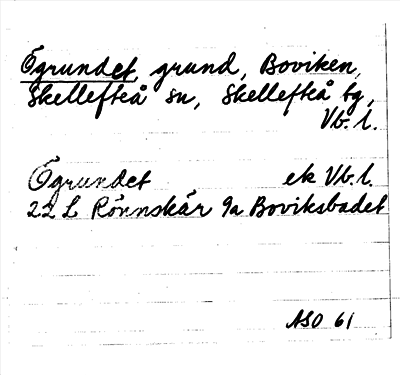 Ögrundet, grund, Boviken,
Skellefteå sn, Skellefteå tg,
Vb. l.
Ögrundet ek Vb. l.
22 L Rönnskär 9a Boviksbadet
ASO 61